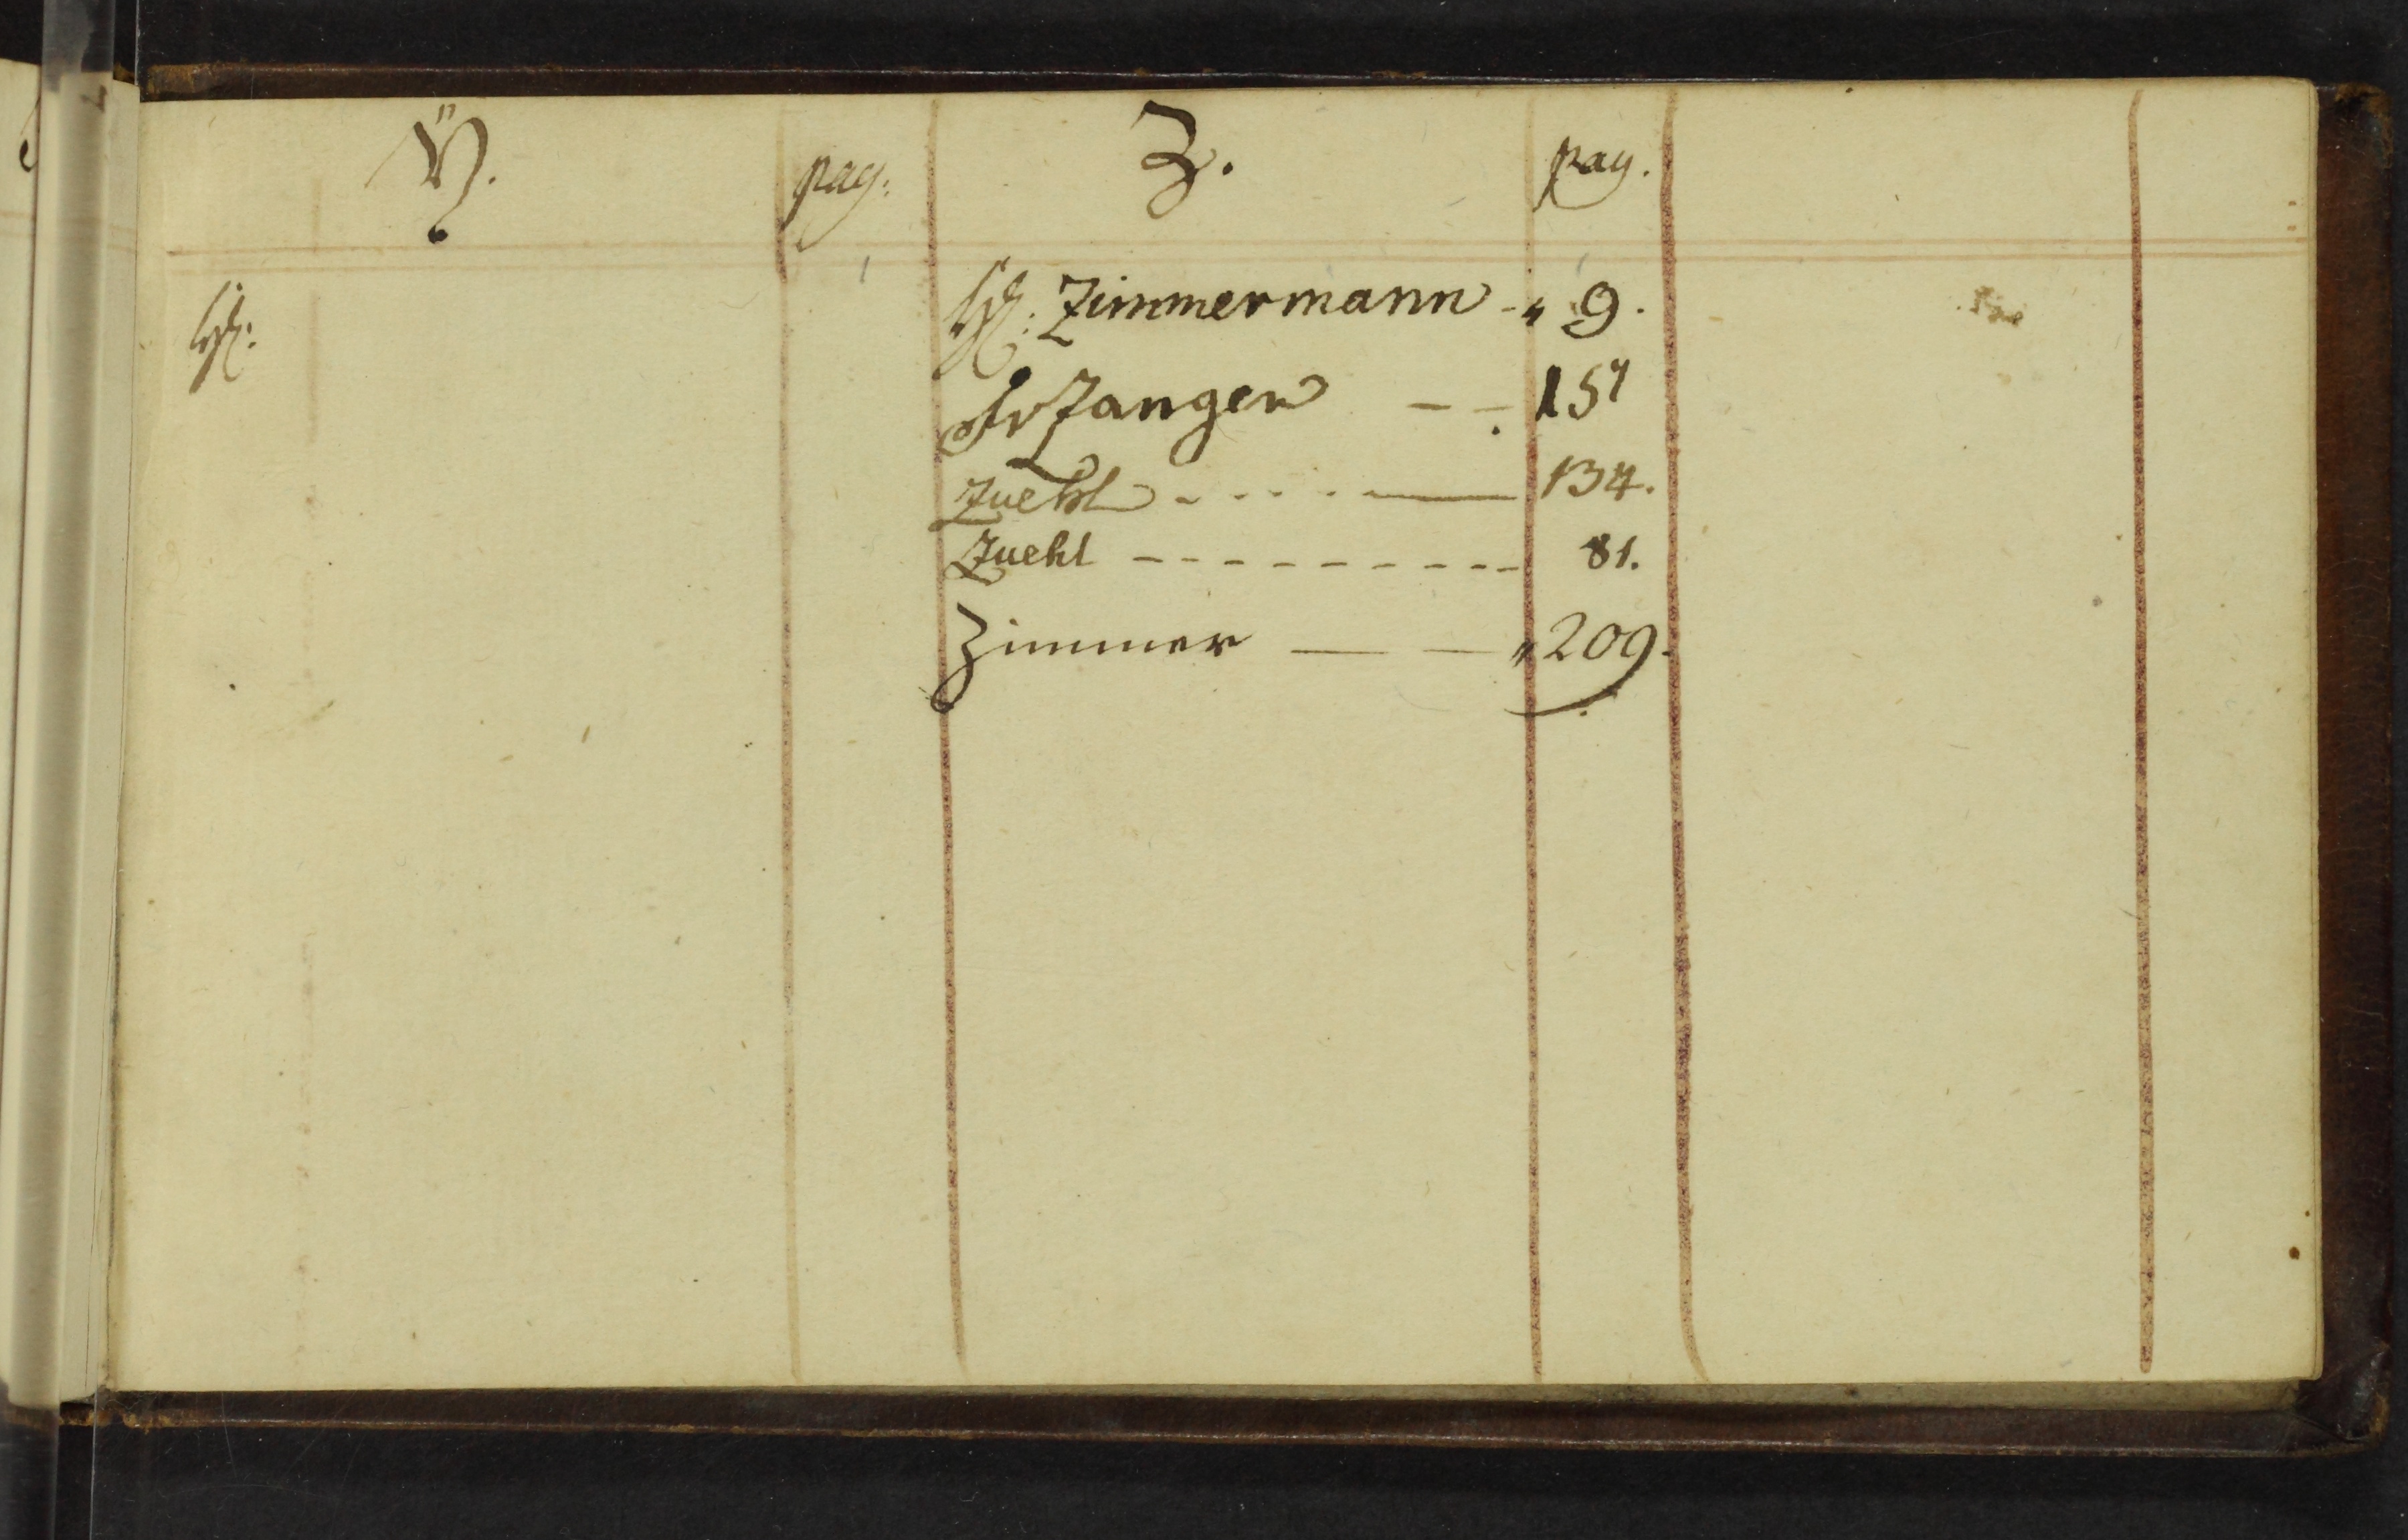 Ÿ. pag. Z. pag.
H: H: Zimmermann - " 9.
Fr Zangen - - 151
Zuehl - - - - — 134.
Zuehl - - - - - - - - - - 81.
Zimmer — — " 209.